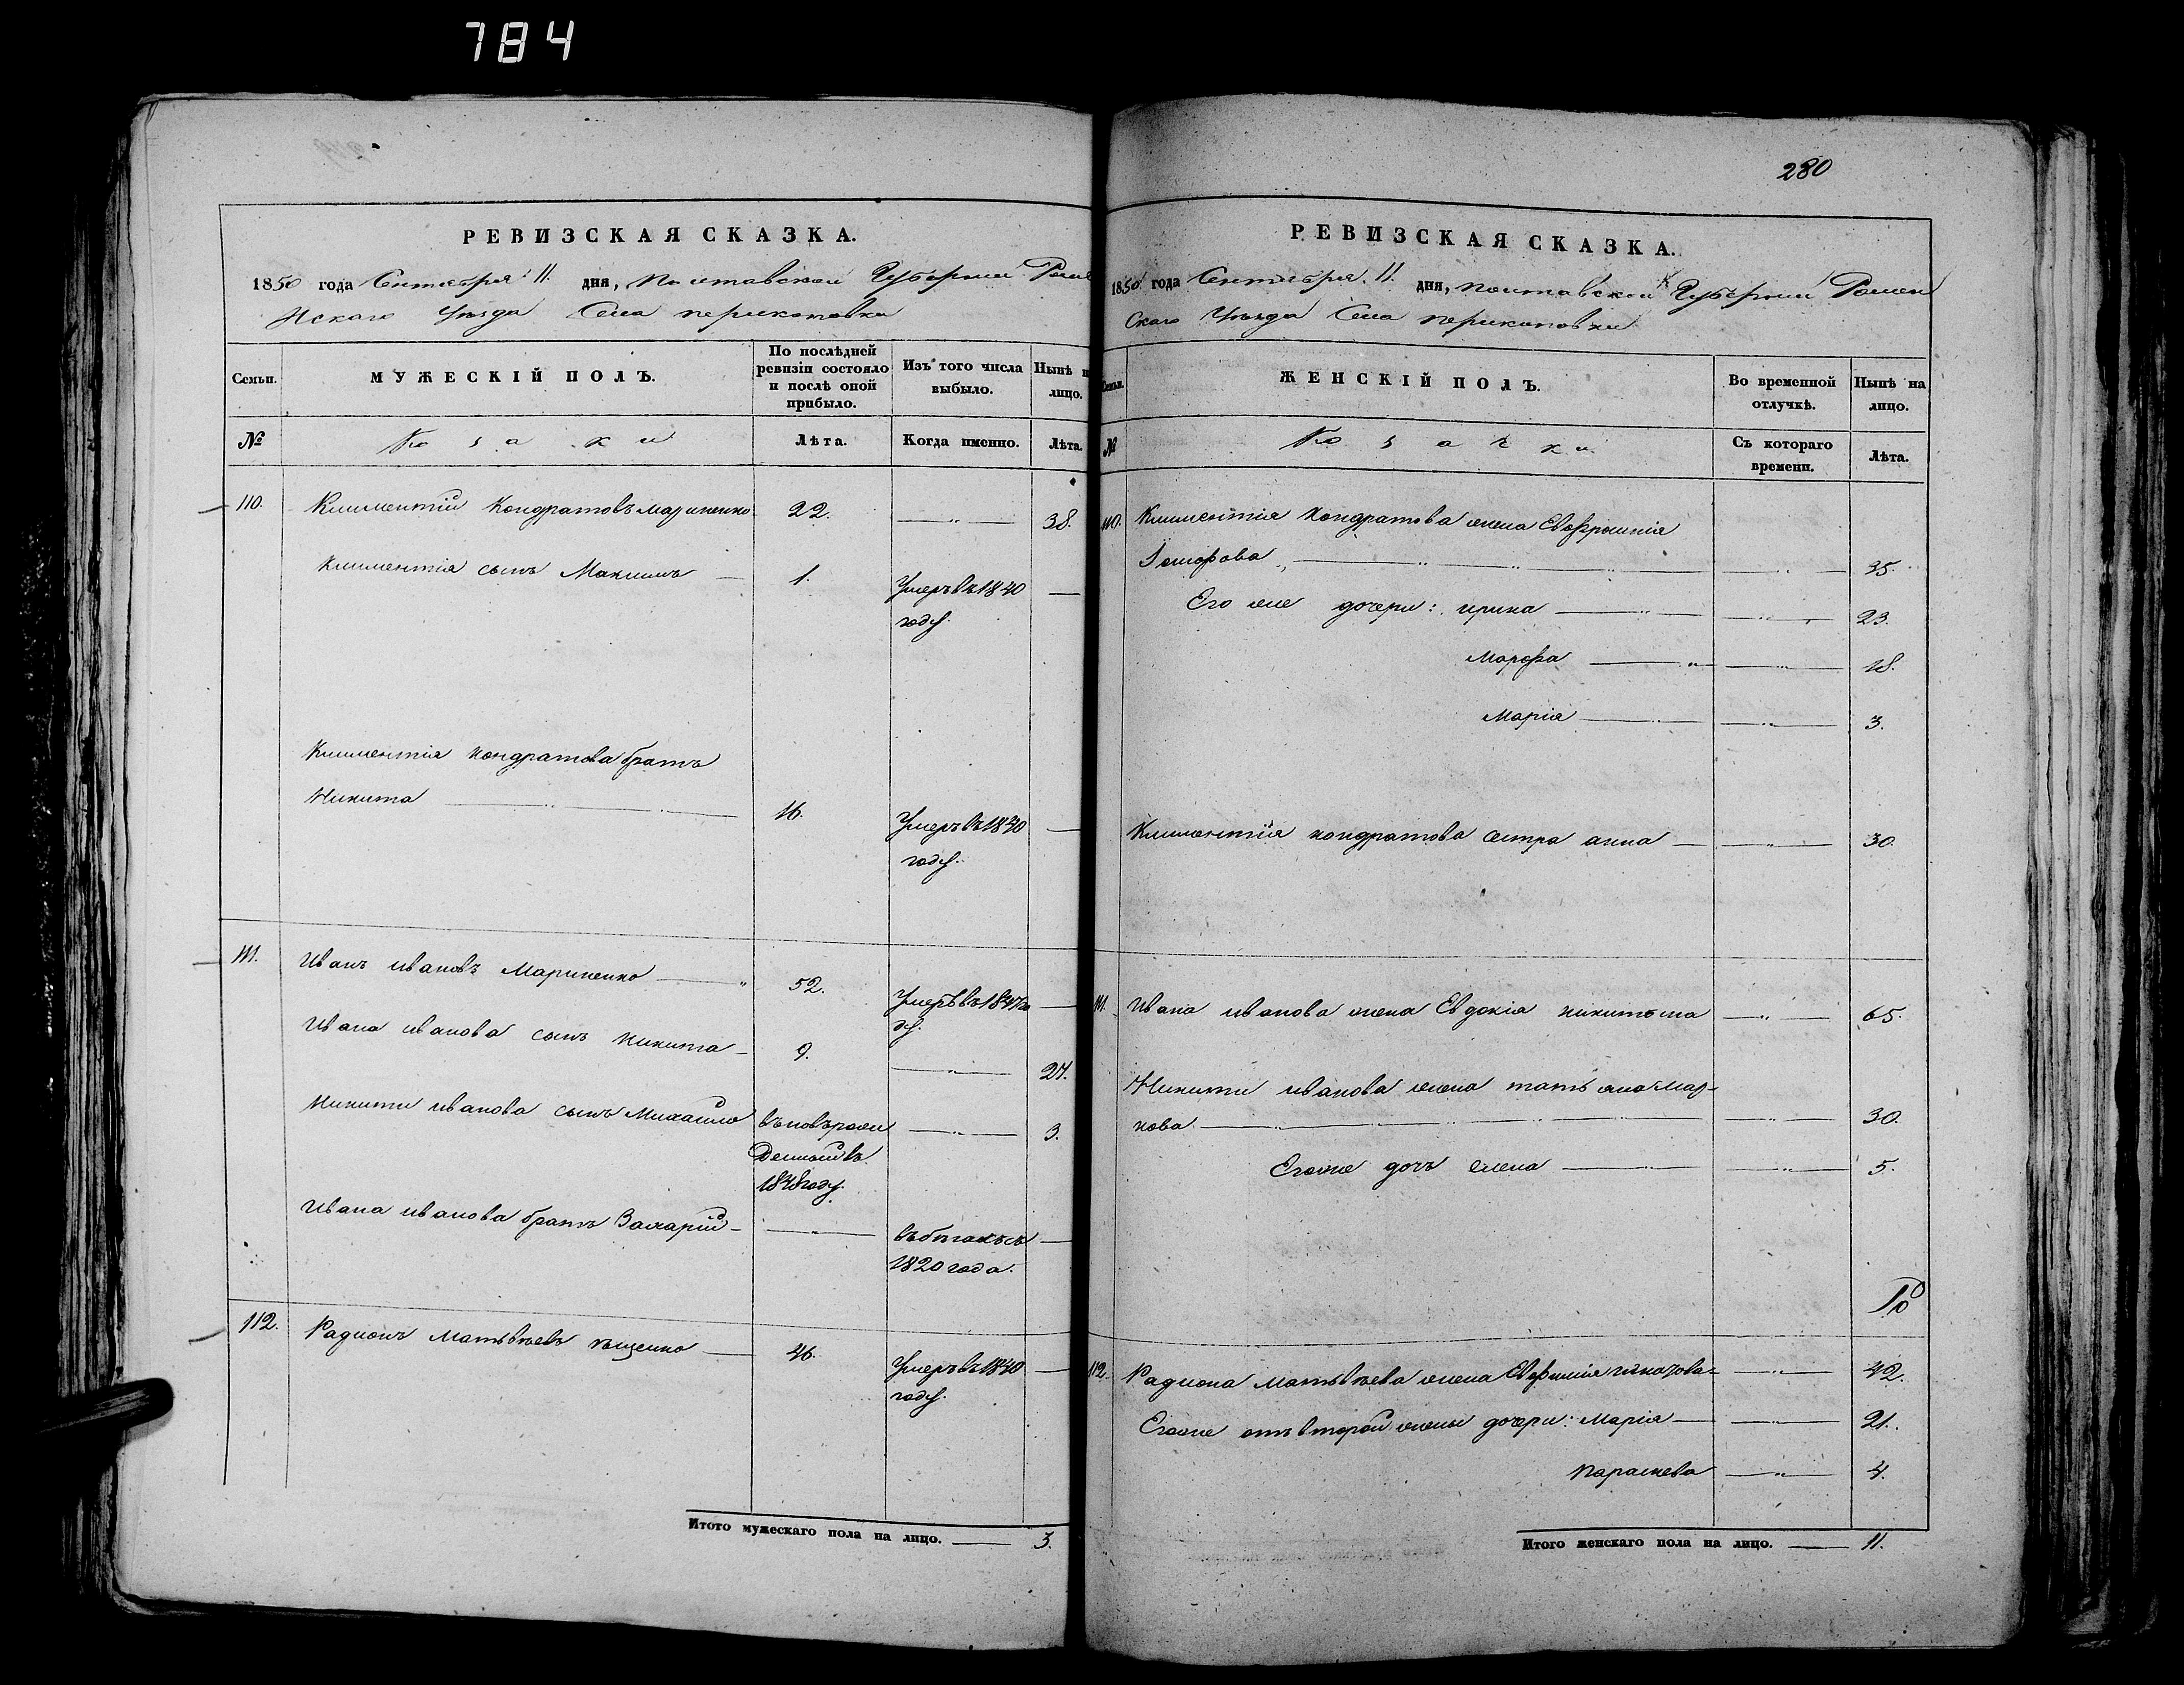 784
РЕВИЗСКАЯ СКАЗКА.
1850 года Сентября 11. дня, Полтавской Губернии Роме
нскаго Уѣзда Села перикоповки
Семьи.
МУЖЕСКІЙ ПОЛЪ.
По послѣдней ревизіи состояло и послѣ оной прибыло.
Изъ того числа выбыло.
Нынѣ н лицо.
№
Козаки
Лѣта.
Когда именно.
Лѣта.
110. Климентій Кондратовъ Мариненко 22. —„— 38.
Климентія сынъ Максимъ — 1. Умеръ въ 1840 —
году.
Климентія кондратова братъ
Никита —„— 16. Умеръ въ 1840 —
году.
111. Иванъ ивановъ Мариненко —„ 52. Умеръ въ 1847 го —
ду.
Ивана иванова сынъ никита — 9. —„— 27.
Никити иванова сынъ Михаило въновѣрож —„— 3.
Денный въ
1848 году.
Ивана иванова братъ Захарій — —„— въбѣгахъ съ —
1820 года.
112. Радионъ Матвѣевъ — 46. Умеръ въ 1840 —
году.
Итого мужескаго пола на лицо. — 3.
280
РЕВИЗСКАЯ СКАЗКА.
1850 года Сентября. 11. дня, полтавской Губернии Ромен
скаго Уѣзда Села перикоповки
Семьи.
ЖЕНСКІЙ ПОЛЪ.
Во временной отлучкѣ.
Нынѣ на лицо.
№
Козачки
Съ котораго времени.
Лѣта.
110. Климентія кондратова жена Евфросинія
—„— —„— 35.
Его же дочери: ирина —„— —„— 23.
Марфа —„— —„— 18.
Марія —„— —„— 3.
Климентія кондратова сестра анна — —„— 30.
111. Ивана иванова жена Евдокія никитина —„— 65.
Никити иванова жена татьяна мар-
кова —„— —„— 30.
Егоже дочь елена — —„— 5.
112. Радиона матвѣева жена Евфимія —„— 42.
Егоже отъ второй жены дочери: Марія — —„— 21.
параскева —„— 4.
Итого женскаго пола на лицо. — 11.